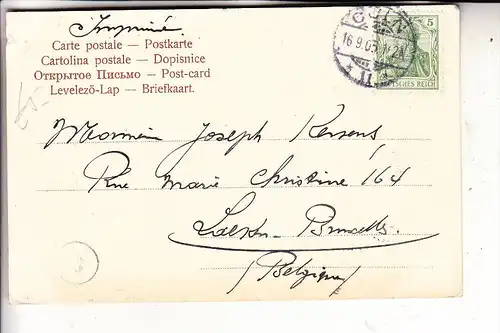 Imprimé
Carte postale — Postkarte
Cartolina postale — Dopisnice
Открытое Письмо — Post-card
Levelező-Lap — Briefkaart.
CÖLN
16.9.03
11
5
REICH
Monsieur Joseph
Rue Marie Christine 164
Laeken-Bruxelles
(Belgique)